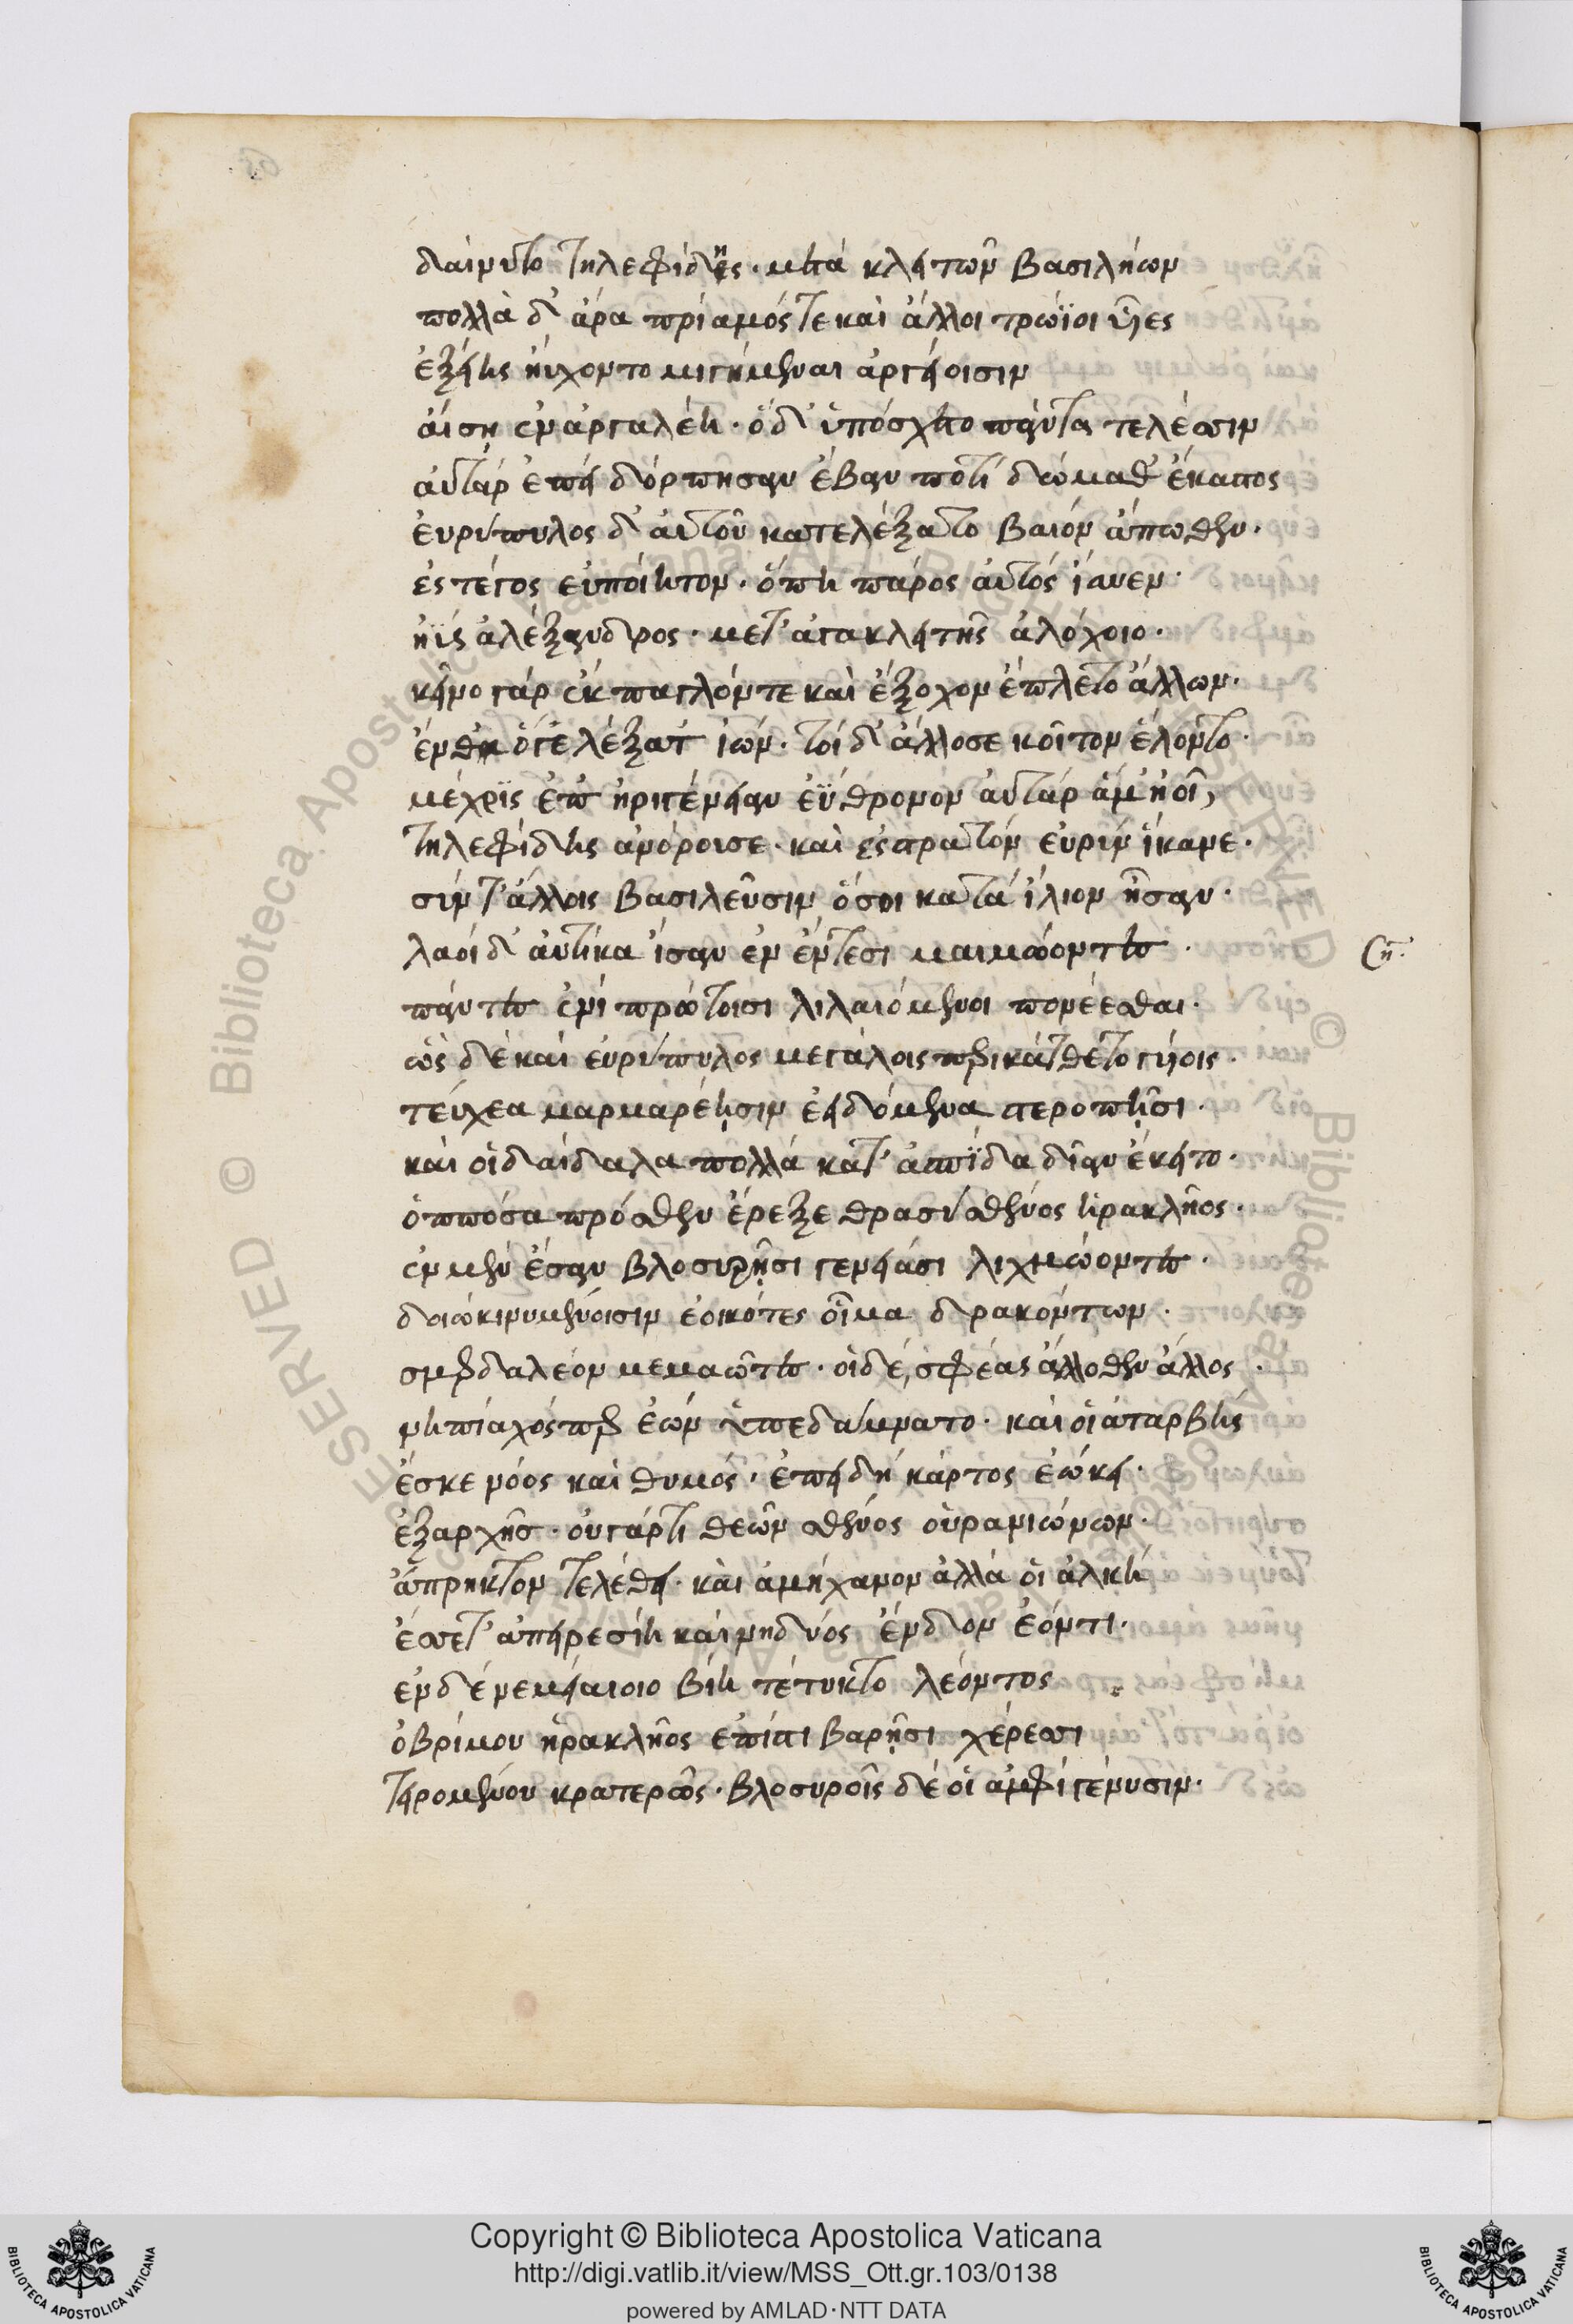 δαίνυτο τηλεφίδης · μετά κλειτῶν βασιλήων
πολλὰ δ' ἄρα πρίαμός τε καὶ ἄλλοι τρώϊοι υἷες
ἑξείης ηὔχοντο μιγήμεναι ἀργείοισιν
ἀίσῃ ἐν ἀργαλέη · ὁ δ' ὑπόσχετο πάντα τελέσσιν
αὐτάρ ἐπεί δόρπησαν ἔβαν ποτί δώμαθ' ἕκαστος
ἐυρύπυλος δ' αὐτοῦ κατελέξατο βαιόν ἄπωθεν ·
ἐς τέγος εὐποίητον · ὅπη πάρος αὐτός ἴαυεν ·
ηΰς ἀλέξανδρος · μετ' ἀγακλειτῆς ἀλόχοιο ·
κεῖνο γάρ ἐκπαγλόν τε καὶ ἔξοχον ἔπλετο ἄλλων ·
ἔνθ' ὅγε λέξατ' ἰών · τοί δ' ἄλλοσε κοῖτον ἕλοντο ·
μέχρϊς ἐπ' ἠριγένειαν ἐΰθρονον αὐτάρ ἅμ' ἠοῖ,
τηλεφίδης ἀνόρουσε · καὶ ἐς στρατόν εὐρύν ἵκανε ·
σύν τ' ἄλλοις βασιλεῦσιν ὅσοι κατά ἴλιον ἦσαν ·
λαοί δ' αὐτίκα ἴσαν ἐν ἔντεσι μαιμώοντες ·
πάντες ἐνί πρώτοισι λιλαιόμενοι πονέεσθαι ·
ὣς δὲ καί εὐρύπυλος μεγάλοις περικάτθετο γυίοις ·
τεύχεα μαρμαρέῃσιν ἐειδόμενα στεροπῇσι ·
καί οἱ δαίδαλα πολλά κατ' ἀσπίδα δῖαν ἔκειτο ·
ὁππόσα πρόσθεν ἔρεξε θρασύ σθένος ἡρακλῆος ·
ἐν μέν ἔσαν βλοσυρῇσι γενειάσι λιχμώοντες ·
δοιώ κινυμένοισιν ἐοικότες οἷμα δρακόντων ·
σμερδαλέον μεμαῶτες · οἱ δέ, σφέας ἄλλοθεν ἄλλος ·
νηπίαχός περ ἐών ὑπεδάμνατο · καί οἱ ἀταρβής
ἔσκε νόος καὶ θυμός · ἐπειδή κάρτος ἐώκει ·
ἐξαρχῆσ · οὐ γάρ τι θεῶν σθένος οὐρανιώνων ·
ἄπρηκτον τελέθει · καὶ ἀμήχανον ἀλλά οἱ ἀλκή
ἕσπετ' ἀπειρεσίη καί νηδύος ἔνδον ἐόντι ·
ἐν δέ νεμείαιοιο βίη τέτυκτο λέοντος
ὀβρίμου ἡρακλῆος ὑπό στιβαρῇσι χέρεσσι
τειρομένου κρατερῶς · βλοσυροῖς δέ οἱ ἀμφί γένυσιν ·
Copyright © Biblioteca Apostolica Vaticana
http://digi.vatlib.it/view/MSS_Ott.gr.103/0138
powered by AMLAD·NTT DATA
BIBLIOTECA APOSTOLICA VATICANA
BIBLIOTECA APOSTOLICA VATICANA